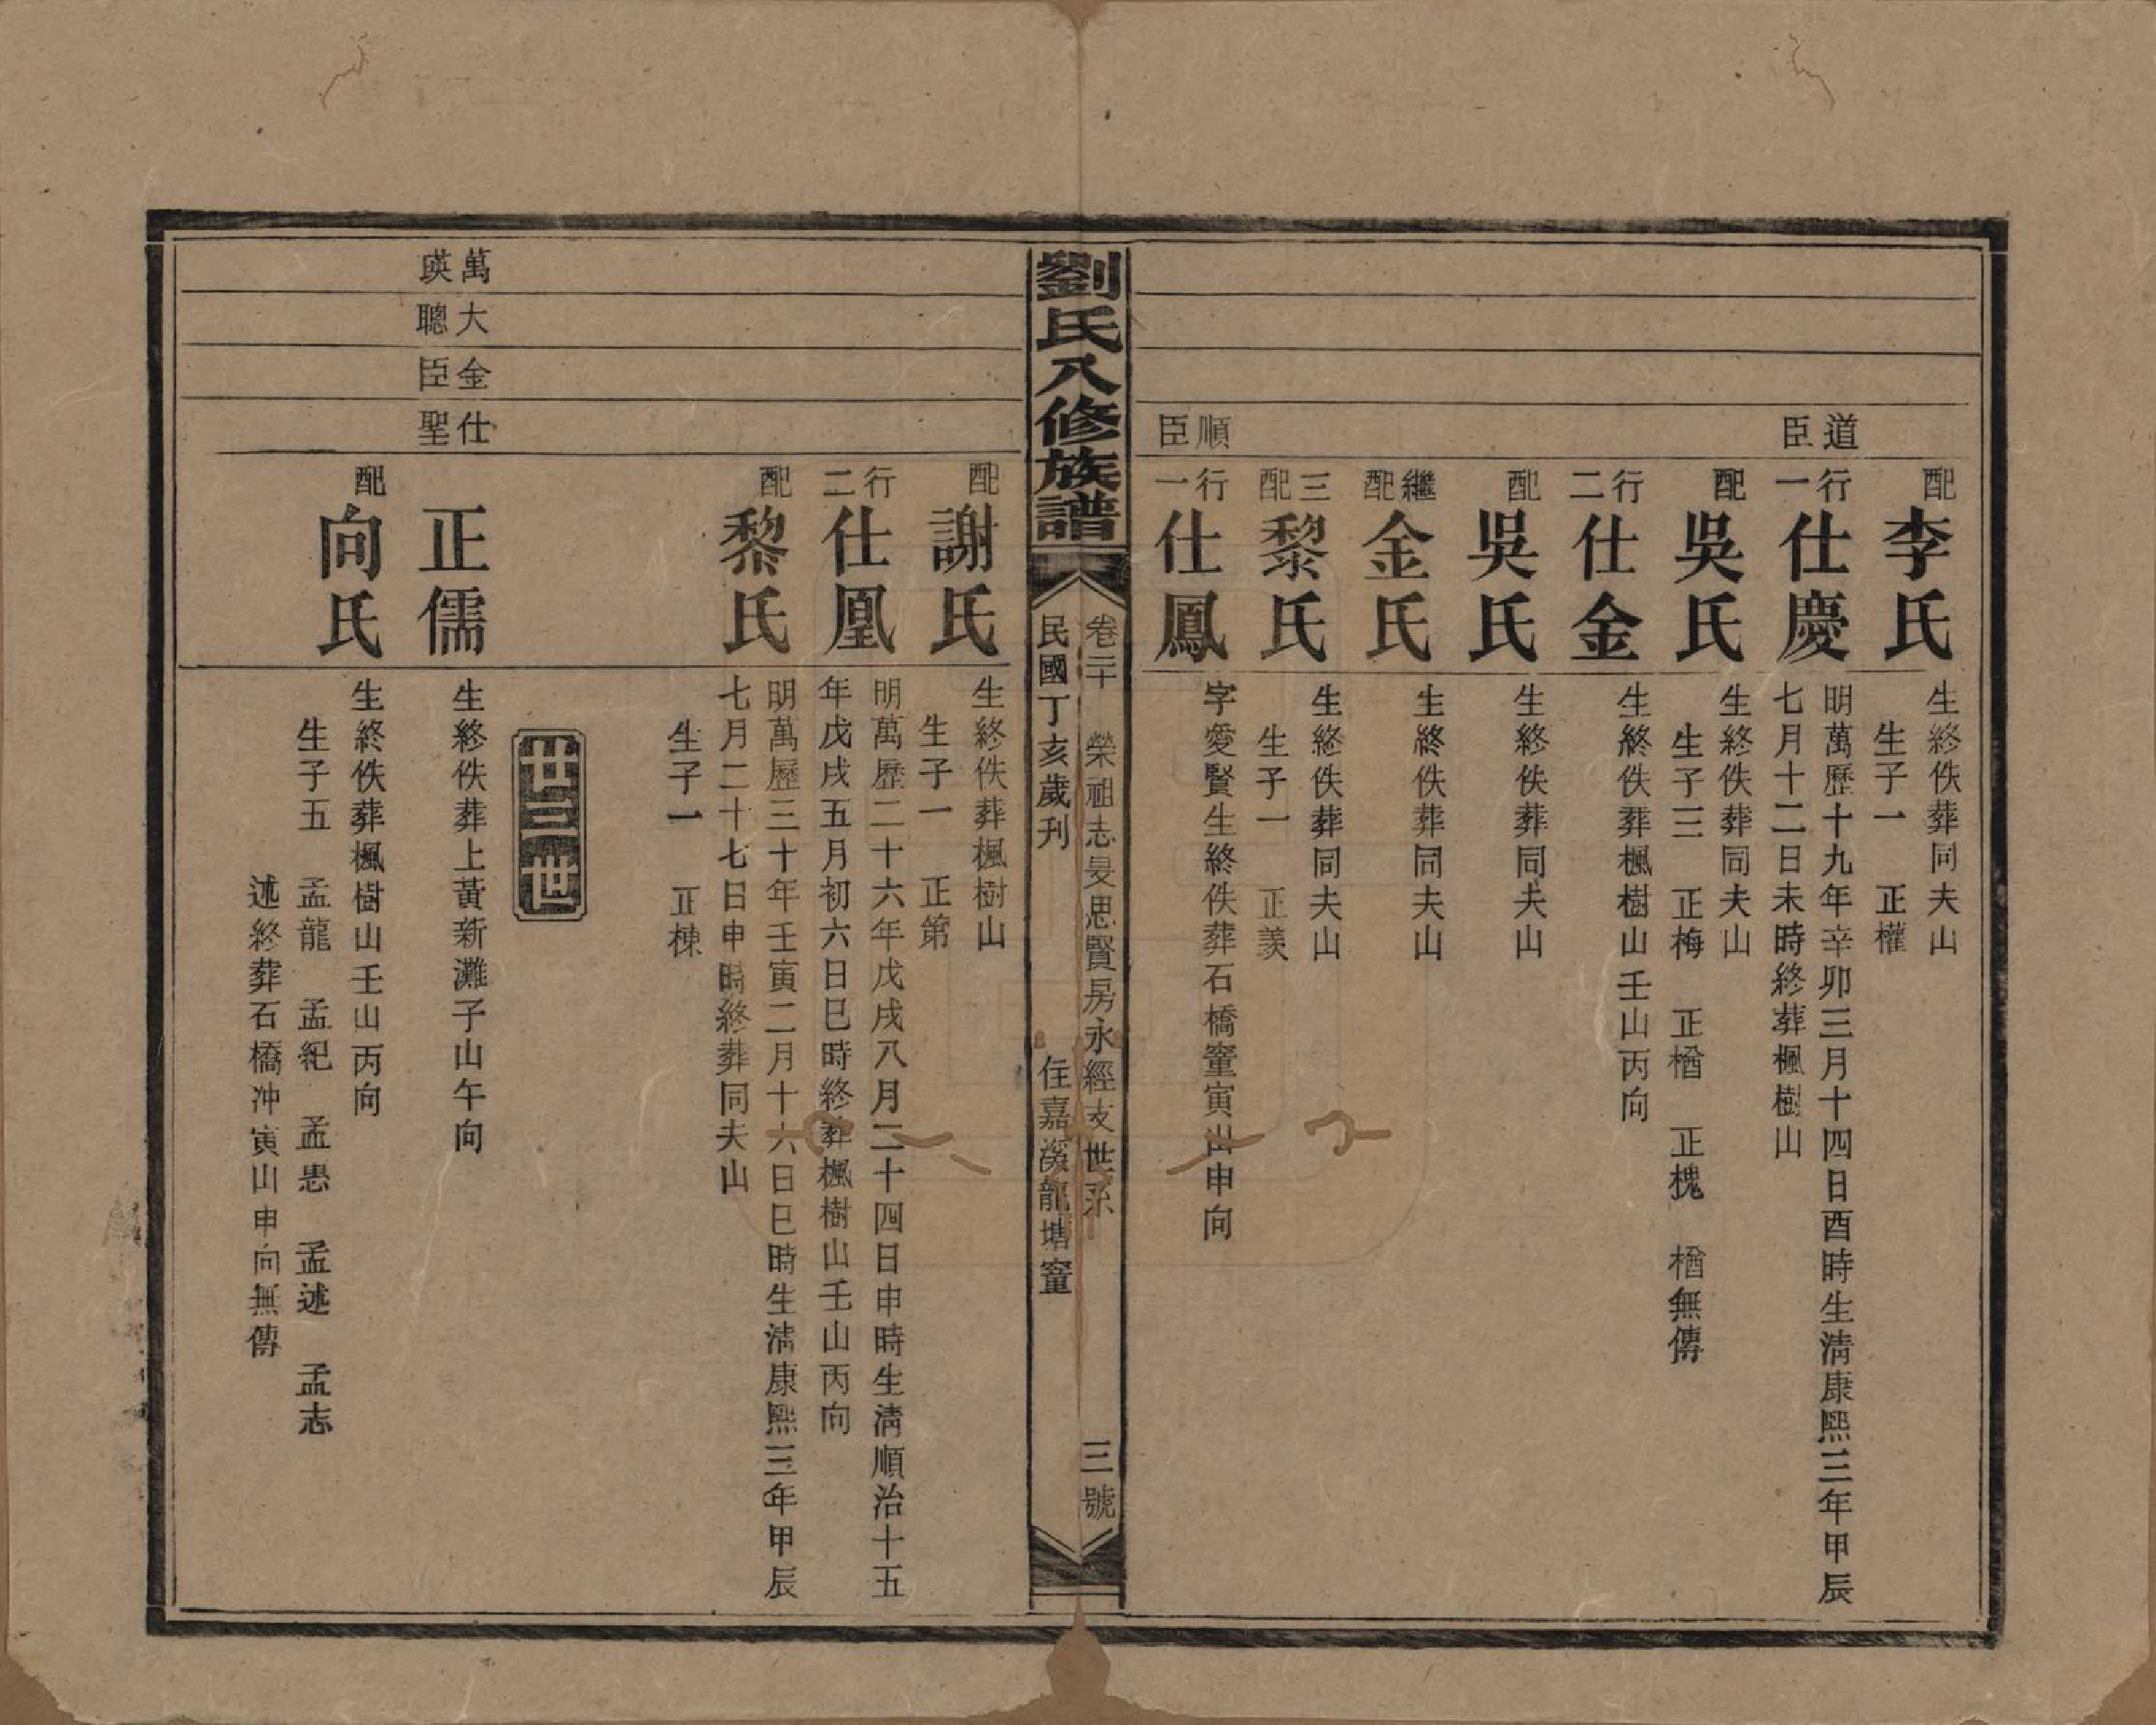 配李氏
生終佚葬同夫山
生子一　正權
道臣
行一仕慶
明萬歷十九年辛卯三月十四日酉時生清康熙三年甲辰
七月十二日未時終葬楓樹山
配吳氏
生終佚葬同夫山
生子三　正梅　正楢　正槐　楢無傳
行二仕金
生終佚葬楓樹山壬山丙向
配吳氏
生終佚葬同夫山
繼配金氏
生終佚葬同夫山
三配黎氏
生終佚葬同夫山
生子一　正羨
順臣
行一仕鳳
字愛賢生終佚葬石橋窰寅山申向
劉氏八修族譜
卷二十　榮祖志旻思賢房永經支世系　三號
民國丁亥歲刊　住嘉溪龍塘窰
配謝氏
生終佚葬楓樹山
生子一　正第
行二仕凰
明萬歷二十六年戊戌八月二十四日申時生清順治十五
年戊戌五月初六日巳時終葬楓樹山壬山丙向
配黎氏
明萬歷三十年壬寅二月十六日巳時生清康熙三年甲辰
七月二十七日申時終葬同夫山
生子一　正棟
世三世
萬瑛
大聰
金臣
仕聖
正儒
生終佚葬上黃新灘子山午向
配向氏
生終佚葬楓樹山壬山丙向
生子五　孟龍　孟紀　孟思　孟述　孟志
述終葬石橋冲寅山申向無傳